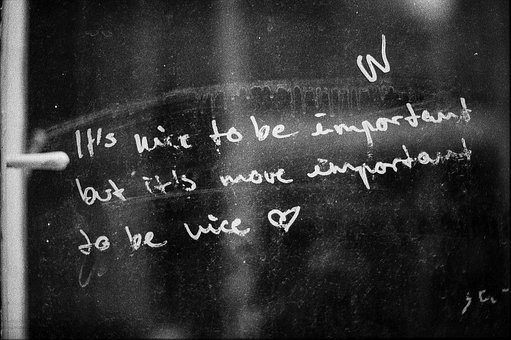 W
It's nice to be important
but it's more important
to be nice ♡